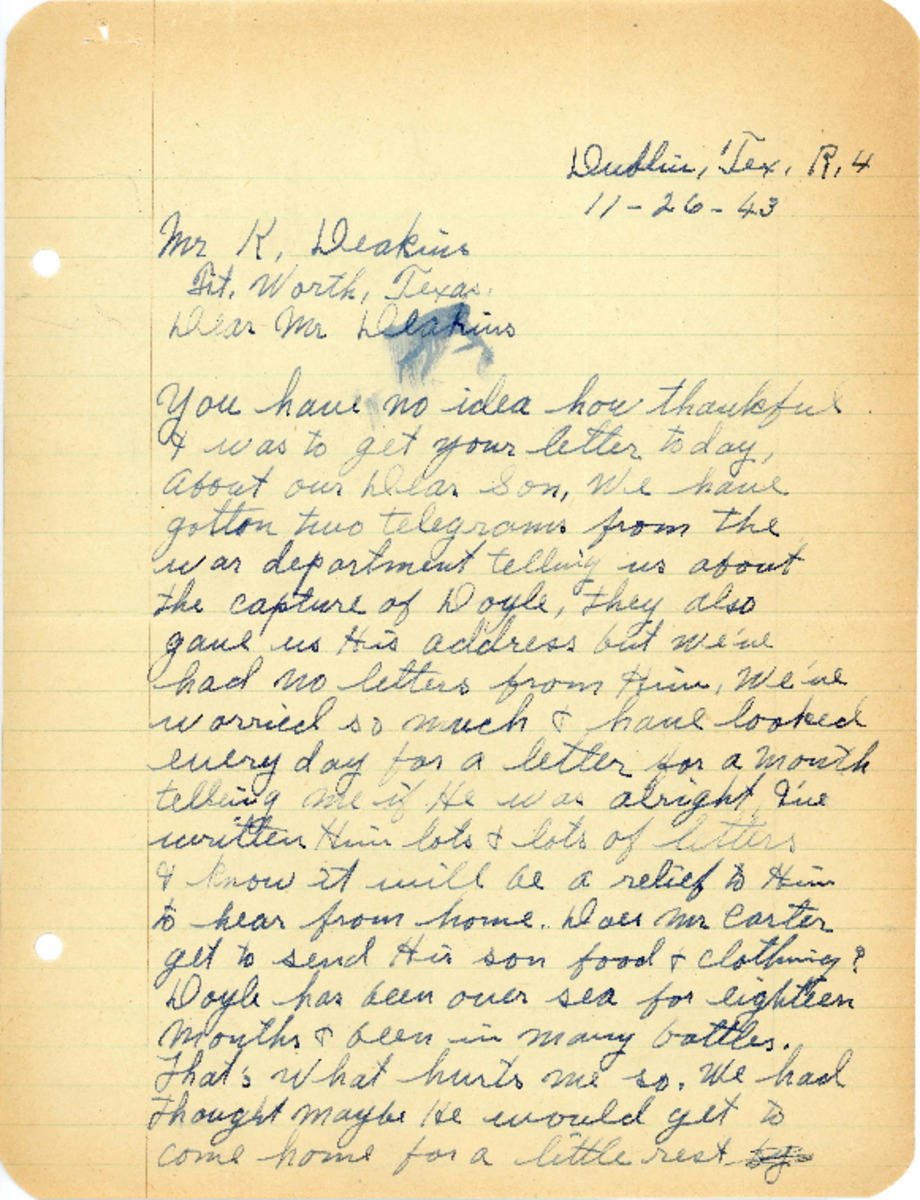 Dublin, Tex. R, 4
11-26-43
Mr K, Deakins
Ft. Worth, Texas.
Dear Mr Deakins
You have no idea how thankful
I was to get your letter today,
About our Dear Son, We have
gotton two telegrams from the
war department telling us about
the capture of Doyle, they also
gave us His address but we've
had no letters from Him, We've
worried so much & have looked
every day for a letter for a month
telling me if He was alright, I've
written Him lots & lots of letters
I know it will be a relief to Him
to hear from home. Does Mr Carter
get to send His son food & clothing?
Doyle has been over sea for eighteen
months & been in many battles.
That's what hurts me so. We had
thought maybe He would get to
come home for a little rest